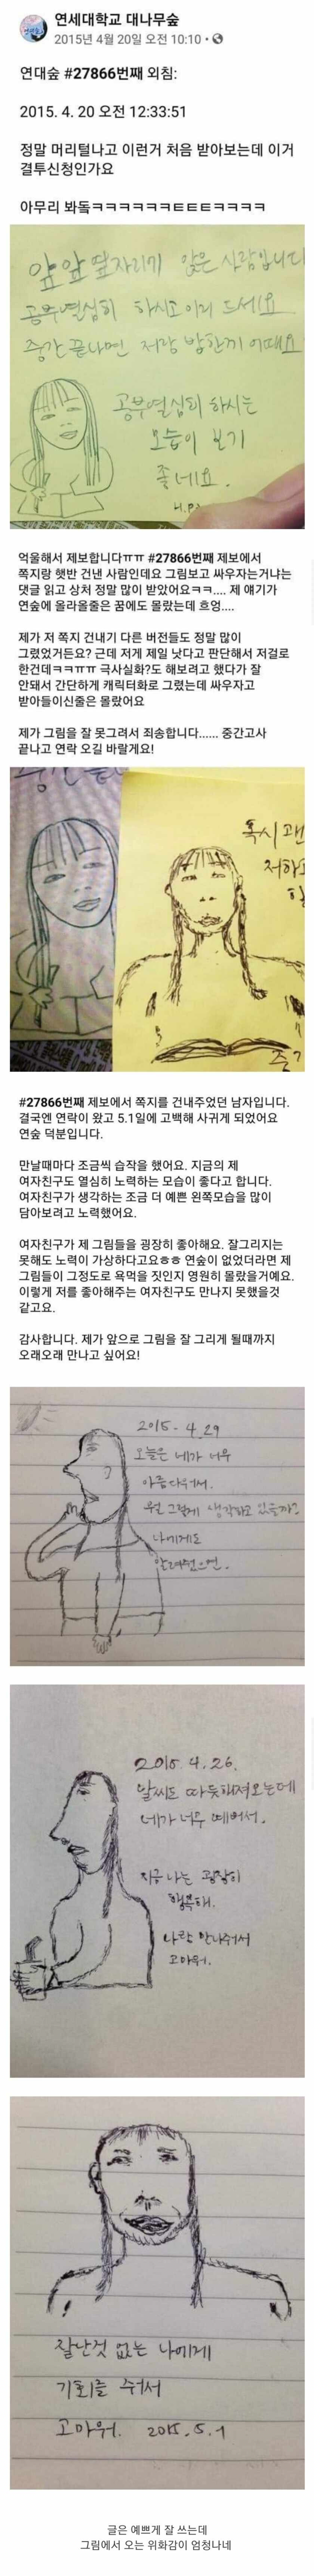 연세대학교 대나무숲
2015년 4월 20일 오전 10:10 ·
연대숲 #27866번째 외침:
2015. 4. 20 오전 12:33:51
정말 머리털나고 이런거 처음 받아보는데 이거
결투신청인가요
아무리 봐돜ㅋㅋㅋㅋㅋㅋㅌㅌㅌㅋㅋㅋㅋ
앞앞 옆자리에 앉은 사람입니다
공부열심히 하시고 이거 드세요
중간 끝나면 저랑 밥한끼 어때요
공부열심히 하시는
모습이 보기
좋네요.
H.P
억울해서 제보합니다ㅠㅠ #27866번째 제보에서
쪽지랑 햇반 건낸 사람인데요 그림보고 싸우자는거냐는
댓글 읽고 상처 정말 많이 받았어요ㅋㅋ.... 제 얘기가
연숲에 올라올줄은 꿈에도 몰랐는데 흐엉....
제가 저 쪽지 건내기 다른 버전들도 정말 많이
그렸었거든요? 근데 저게 제일 낫다고 판단해서 저걸로
한건데ㅋㅋㅠㅠ 극사실화?도 해보려고 했다가 잘
안돼서 간단하게 캐릭터화로 그렸는데 싸우자고
받아들이신줄은 몰랐어요
제가 그림을 잘 못그려서 죄송합니다...... 중간고사
끝나고 연락 오길 바랄게요!
혹시 괜
저하
#27866번째 제보에서 쪽지를 건내주었던 남자입니다.
결국엔 연락이 왔고 5.1일에 고백해 사귀게 되었어요
연숲 덕분입니다.
만날때마다 조금씩 습작을 했어요. 지금의 제
여자친구도 열심히 노력하는 모습이 좋다고 합니다.
여자친구가 생각하는 조금 더 예쁜 왼쪽모습을 많이
담아보려고 노력했어요.
여자친구가 제 그림들을 굉장히 좋아해요. 잘그리지는
못해도 노력이 가상하다고요ㅎㅎ 연숲이 없었더라면 제
그림들이 그정도로 욕먹을 짓인지 영원히 몰랐을거예요.
이렇게 저를 좋아해주는 여자친구도 만나지 못했을것
같고요.
감사합니다. 제가 앞으로 그림을 잘 그리게 될때까지
오래오래 만나고 싶어요!
2015. 4.29
오늘은 네가 너무
아름다워서.
뭘 그렇게 생각하고 있을까?
나에게도
알려줬으면.
2015. 4. 26.
날씨도 따듯해져오는데
네가 너무 예뻐서.
지금 나는 굉장히
행복해.
나랑 만나줘서
고마워.
잘난것 없는 나에게
기회를 줘서
고마워. 2015. 5. 1
글은 예쁘게 잘 쓰는데
그림에서 오는 위화감이 엄청나네